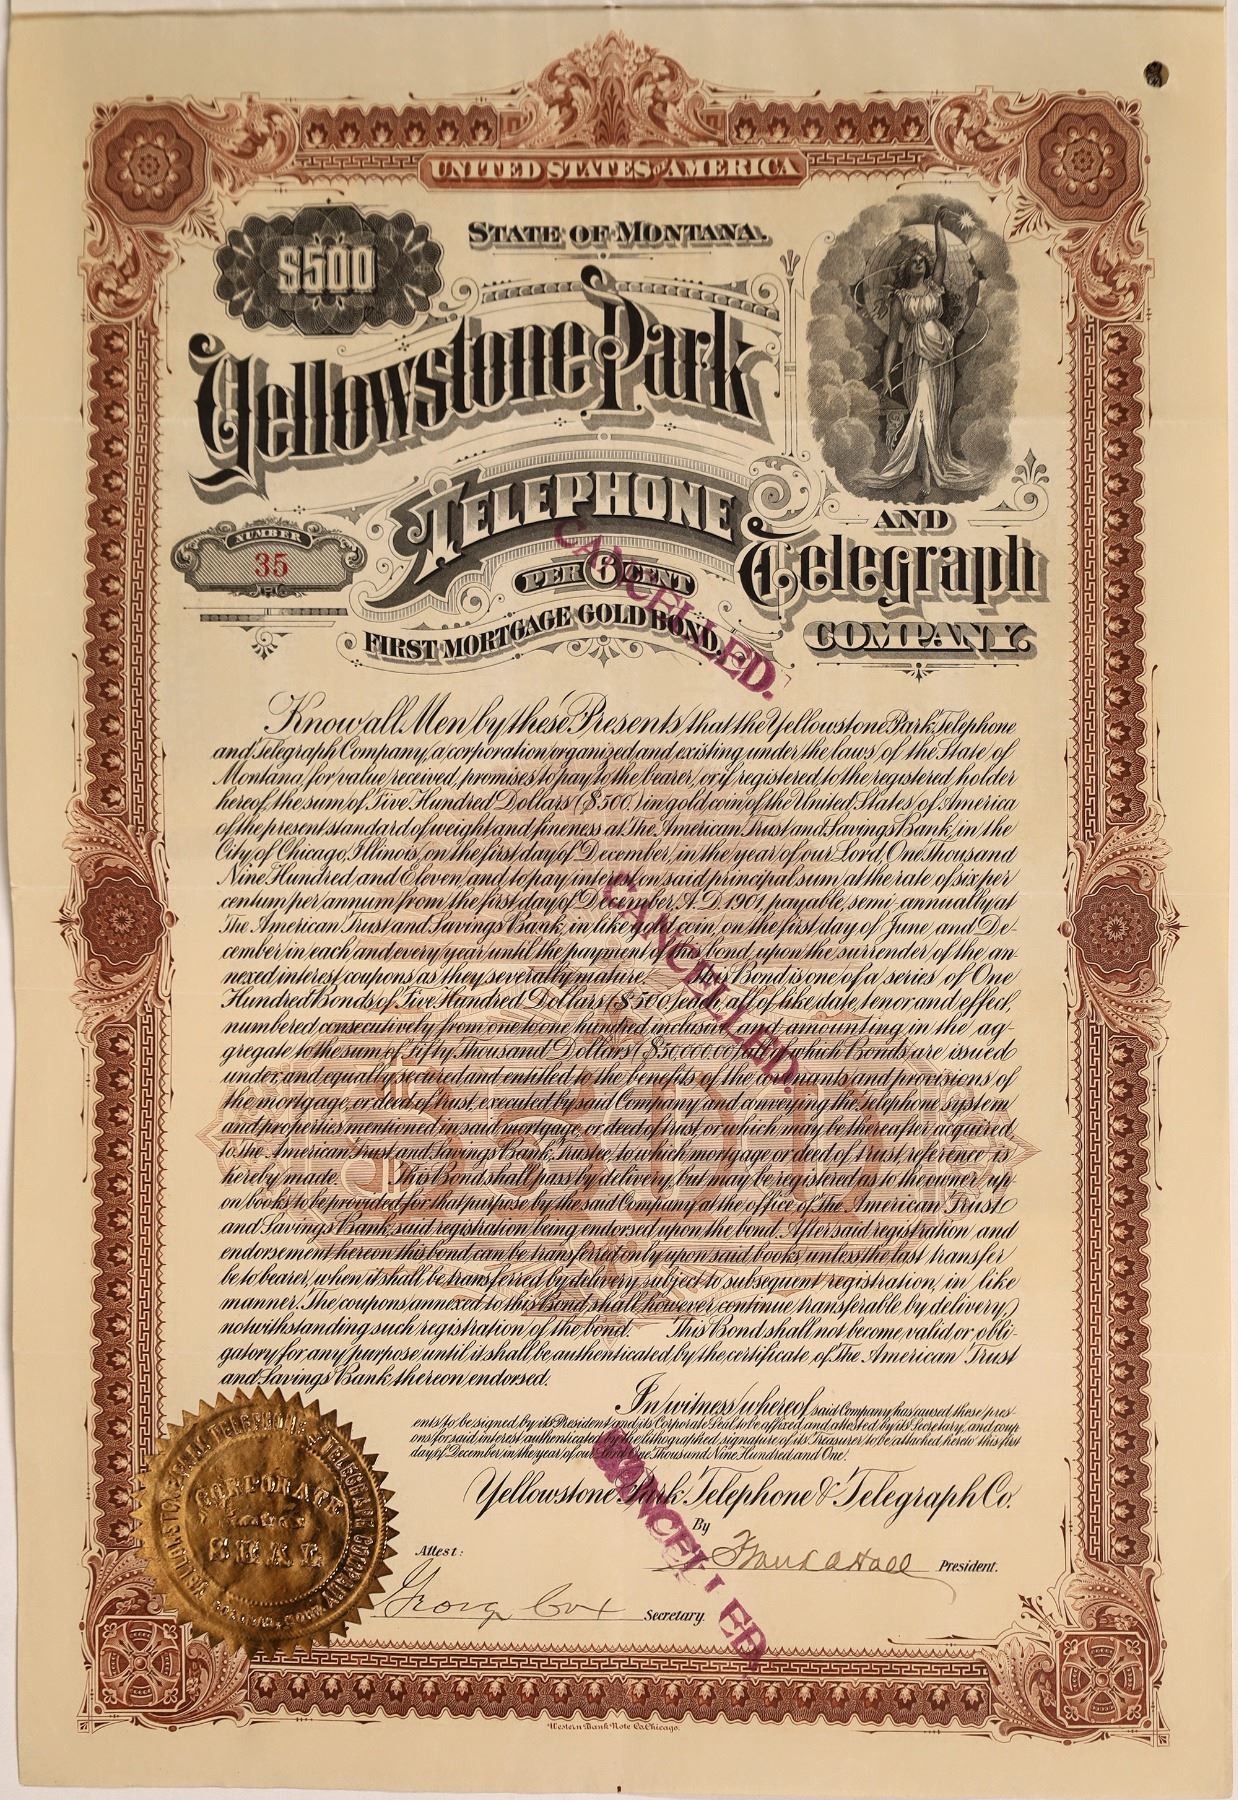 UNITED STATES OF AMERICA
STATE OF MONTANA.
$500
Yellowstone Park
TELEPHONE
AND
Telegraph
COMPANY.
NUMBER
35
PER 6 CENT
FIRST MORTGAGE GOLD BOND.
CANCELLED.
Know all Men by these Presents, that the Yellowstone Park Telephone
and Telegraph Company, a corporation organized and existing under the laws of the State of
Montana, for value received, promises to pay to the bearer, or if registered, to the registered holder
hereof, the sum of Five Hundred Dollars ($500.) in gold coin of the United States of America
of the present standard of weight and fineness at The American Trust and Savings Bank, in the
City of Chicago, Illinois, on the first day of December, in the year of our Lord, One Thousand
Nine Hundred and Eleven, and to pay interest on said principal sum at the rate of six per
centum per annum from the first day of December, A. D. 1901, payable semi-annually at
The American Trust and Savings Bank, in like gold coin, on the first day of June and De-
cember in each and every year until the payment of this bond, upon the surrender of the an-
nexed interest coupons as they severally mature. This Bond is one of a series of One
Hundred Bonds of Five Hundred Dollars ($500.) each, all of like date, tenor and effect,
numbered consecutively from one to one hundred inclusive and amounting in the ag-
gregate to the sum of Fifty Thousand Dollars ($50,000.00) all of which Bonds are issued
under, and equally secured and entitled to the benefits of the covenants and provisions of
the mortgage, or deed of trust, executed by said Company and conveying the telephone system
and properties mentioned in said mortgage, or deed of trust, or which may be thereafter acquired,
to The American Trust and Savings Bank, Trustee, to which mortgage or deed of trust, reference is
hereby made. This Bond shall pass by delivery, but may be registered as to the owner up-
on books to be provided for that purpose by the said Company at the office of The American Trust
and Savings Bank, said registration being endorsed upon the bond. After said registration and
endorsement hereon this bond can be transferred only upon said books, unless the last transfer
be to bearer, when it shall be transferred by delivery, subject to subsequent registration, in like
manner. The coupons annexed to this Bond, shall however, continue transferable by delivery,
notwithstanding such registration of the bond. This Bond shall not become valid or obli-
gatory for any purpose until it shall be authenticated by the certificate of The American Trust
and Savings Bank thereon endorsed.
CANCELLED.
In witness whereof, said Company has caused these pres-
ents to be signed by its President and its Corporate Seal to be affixed and attested by its Secretary, and coup-
ons for said interest authenticated by the lithographed signature of its Treasurer to be attached hereto this first
day of December, in the year of our Lord One Thousand Nine Hundred and One.
Yellowstone Park Telephone & Telegraph Co.
By
Frank A Hall President.
Attest:
George Cox Secretary.
CANCELLED.
YELLOWSTONE PARK TELEPHONE & TELEGRAPH COMPANY
CORPORATE
SEAL
Western Bank Note Co. Chicago.